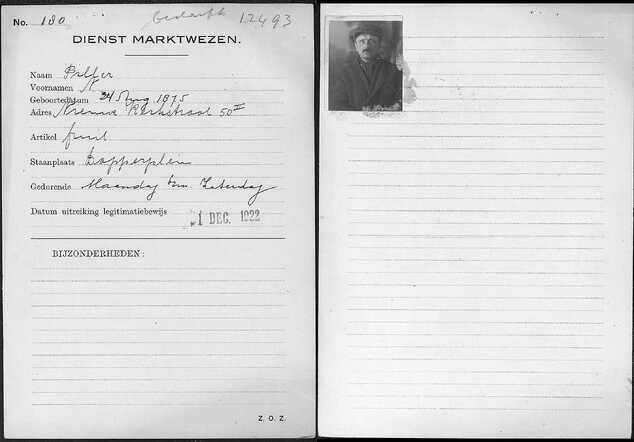 No. 180 12493
DIENST MARKTWEZEN.
Naam Piller
Voornamen N
Geboortedatum 24 Aug 1875
Adres Nieuwe Kerkstraat 50 II
Artikel fruit
Staanplaats Dapperplein
Gedurende Maandag t/m Zaterdag
Datum uitreiking legitimatiebewijs 1 DEC. 1922
BIJZONDERHEDEN:
Z. O. Z.